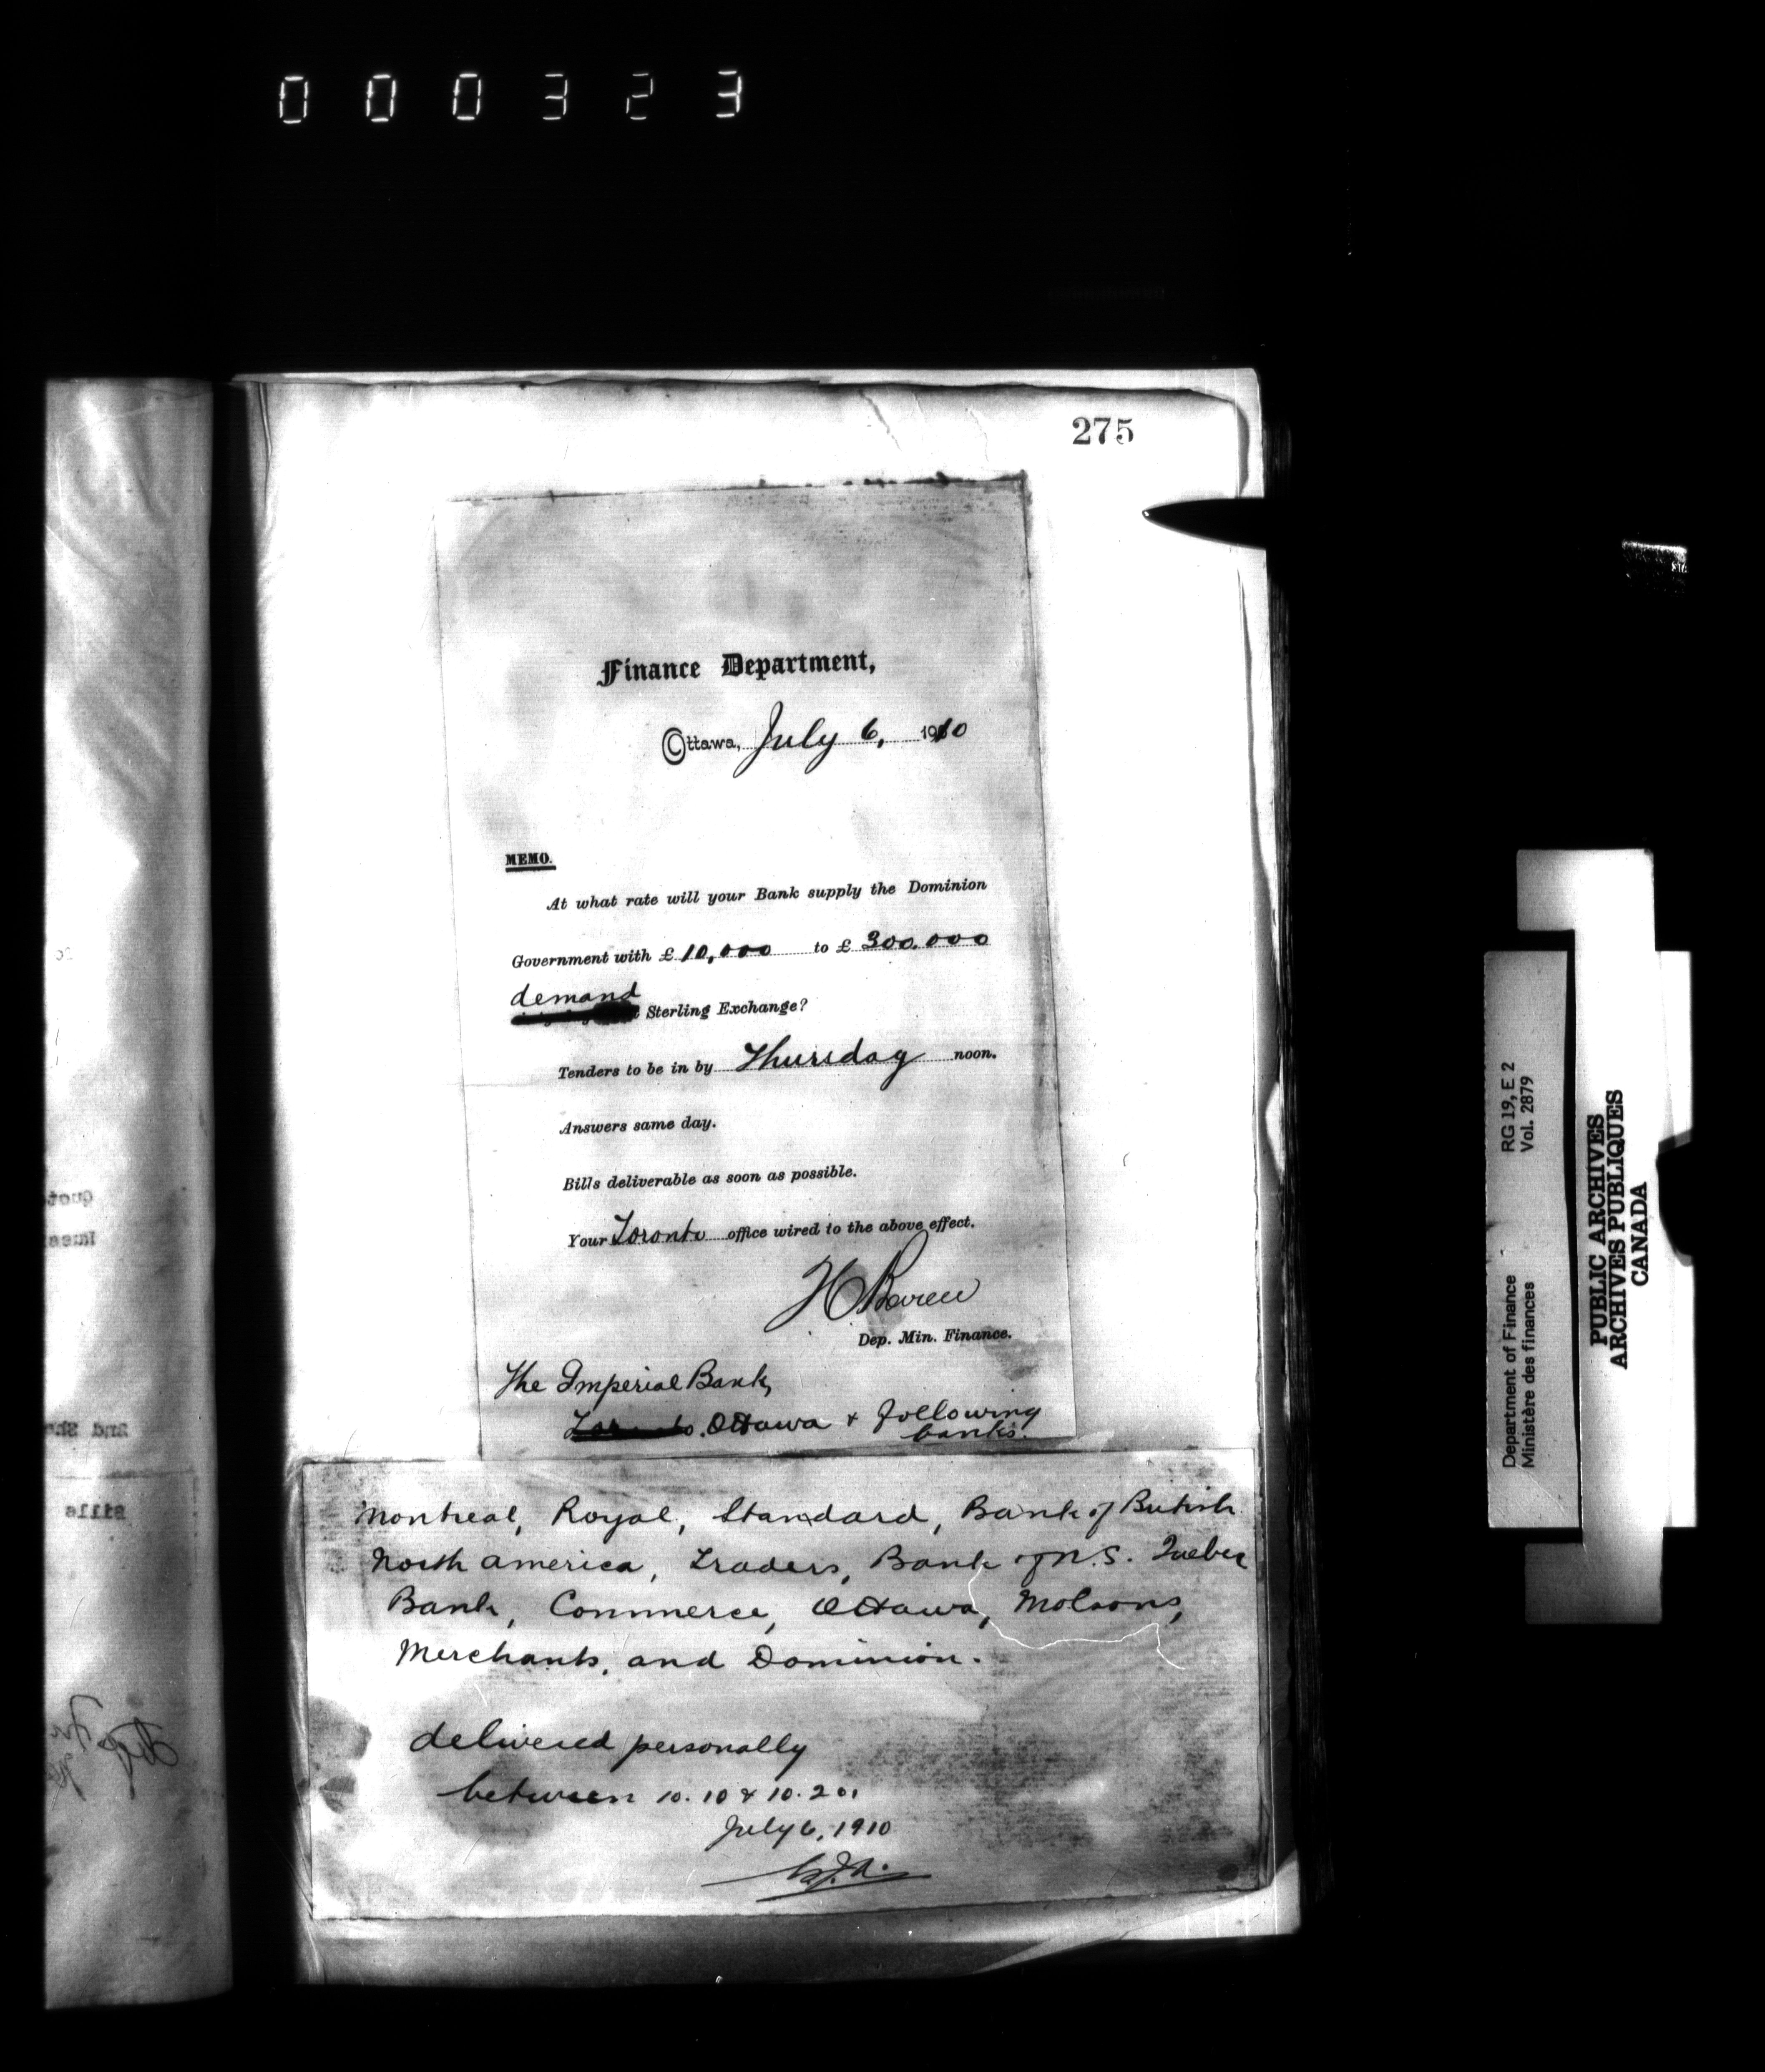 000323
275
Finance Department,
Ottawa, July 6, 1910
MEMO.
At what rate will your Bank supply the Dominion
Government with £ 10,000 to £ 300.000
demand
Sterling Exchange?
Tenders to be in by Thursday noon.
Answers same day.
Bills deliverable as soon as possible.
Your Toronto office wired to the above effect.
Dep. Min. Finance.
The Imperial Bank,
Toronto. Ottawa & following
banks.
Montreal, Royal, Standard, Bank of British
North America, Traders, Bank of N.S. Quebec
Bank, Commerce, Ottawa, Molsons,
Merchants, and Dominion.
delivered personally
between 10.10 & 10.20,
July 6, 1910
Department of Finance RG 19, E 2
Ministère des finances Vol. 2879
PUBLIC ARCHIVES
ARCHIVES PUBLIQUES
CANADA